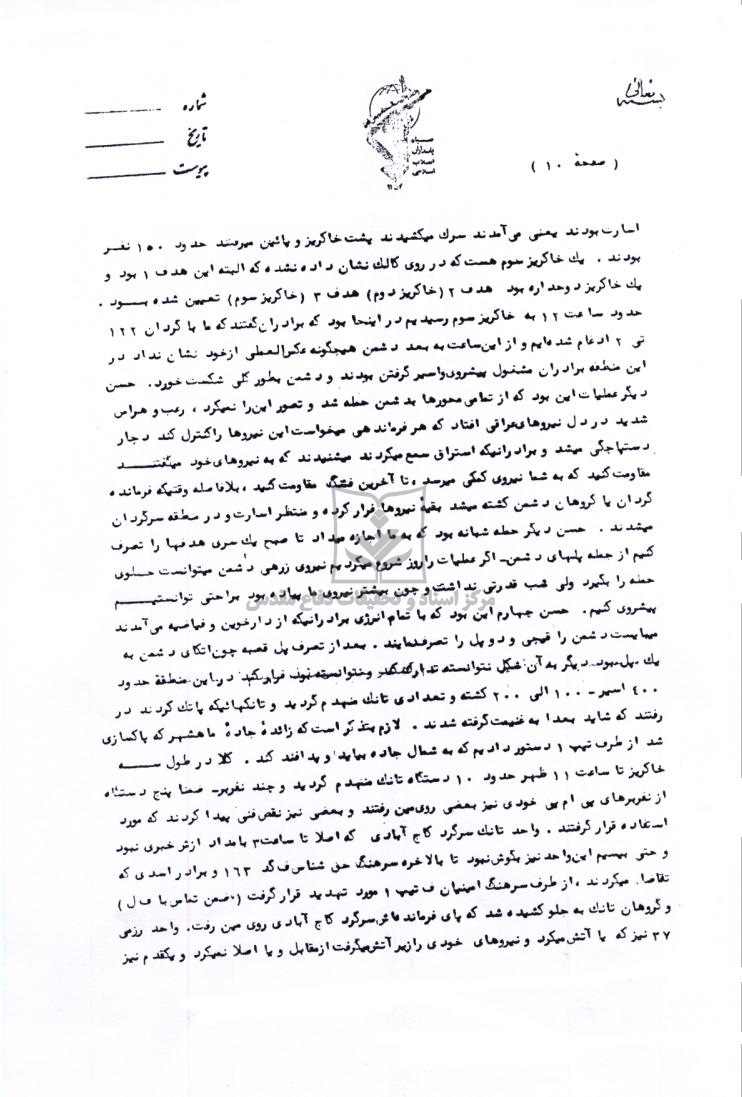 بسمه تعالی
شماره
تاریخ
پیوست
سپاه
پاسداران
انقلاب
اسلامی
( صفحهٔ ۱۰ )
اسارت بودند یعنی می‌آمدند سرک میکشیدند پشت خاکریز و پائین میرفتند حدود ۱۵۰ نفر
بودند . یک خاکریز سوم هست که در روی کالک نشان داده نشده که البته این هدف ۱ بود و
یک خاکریز دوجداره بود هدف ۲ (خاکریز دوم) هدف ۳ (خاکریز سوم) تعیین شده بود .
حدود ساعت ۱۲ به خاکریز سوم رسیدیم در اینجا بود که برادران گفتند که ما با گردان ۱۲۲
تی ۲ ادغام شده‌ایم و از این ساعت به بعد دشمن هیچگونه عکس‌العملی ازخود نشان نداد در
این منطقه برادران مشغول پیشروی و اسیر گرفتن بودند و دشمن بطور کلی شکست خورد. حسن
دیگر عملیات این بود که از تمامی محورها به دشمن حمله شد و تصور این را نمیکرد ، رعب و هراس
شدید در دل نیروهای عراقی افتاد که هر فرماندهی میخواست این نیروها را کنترل کند دچار
دستپاچگی میشد و برادرانیکه استراق سمع میکردند میشنیدند که به نیروهای خود میگفتند
مقاومت کنید که به شما نیروی کمکی میرسد ، تا آخرین فشنگ مقاومت کنید ، بلافاصله وقتیکه فرمانده
گردان یا گروهان دشمن کشته میشد بقیهٔ نیروها فرار کرده و منتظر اسارت و در منطقه سرگردان
میشدند . حسن دیگر حمله شبانه بود که به ما اجازه میداد تا صبح یک سری هدفها را تصرف
کنیم از جمله پلهای دشمن- اگر عملیات را روز شروع میکردیم نیروی زرهی دشمن میتوانست جلوی
حمله را بگیرد ولی شب قدرتی نداشت و چون بیشتر نیروی ما پیاده بود براحتی توانستیم
پیشروی کنیم . حسن چهارم این بود که با تمام انرژی برادرانیکه از دارخوین و فیاضیه می‌آمدند
میبایست دشمن را قیچی و دو پل را تصرف نمایند . بعد از تصرف پل قصبه چون اتکای دشمن به
یک پل بود دیگر به آن شکل نتوانسته تدارک کند و نتوانسته بود فرار کند . در این منطقهٔ حدود
۴۰۰ اسیر - ۱۰۰ الی ۲۰۰ کشته و تعدادی تانک منهدم گردید و تانکهائیکه پاتک کردند در
رفتند که شاید بعدا به غنیمت گرفته شدند . لازم بتذکر است که زائدهٔ جادهٔ ماهشهر که پاکسازی
شد از طرف تیپ ۱ دستور دادیم که به شمال جاده بیاید و پدافند کند . کلا در طول سه
خاکریز تا ساعت ۱۱ ظهر حدود ۱۰ دستگاه تانک منهدم گردید و چند نفربر- ضمنا پنج دستگاه
از نفربرهای پی ام پی خودی نیز بعضی روی مین رفتند و بعضی نیز نقص فنی پیدا کردند که مورد
استفاده قرار گرفتند . واحد تانک سرگرد کاج آبادی که اصلا تا ساعت ۳ بامداد ازش خبری نبود
و حتی بیسیم این واحد نیز بگوش نبود تا بالاخره سرهنگ حق شناس ف گد ۱۶۳ و برادر اسدی که
تقاضا میکردند ، از طرف سرهنگ امینیان ف تیپ ۱ مورد تهدید قرار گرفت (ضمن تماس با ف ل )
و گروهان تانک به جلو کشیده شد که پای فرمانده‌اش سرگرد کاج آبادی روی مین رفت. واحد رزمی
۳۷ نیز که یا آتش میکرد و نیروهای خودی را زیر آتش میگرفت از مقابل و یا اصلا نمیکرد و یکقدم نیز
مرکز اسناد و تحقیقات دفاع مقدس